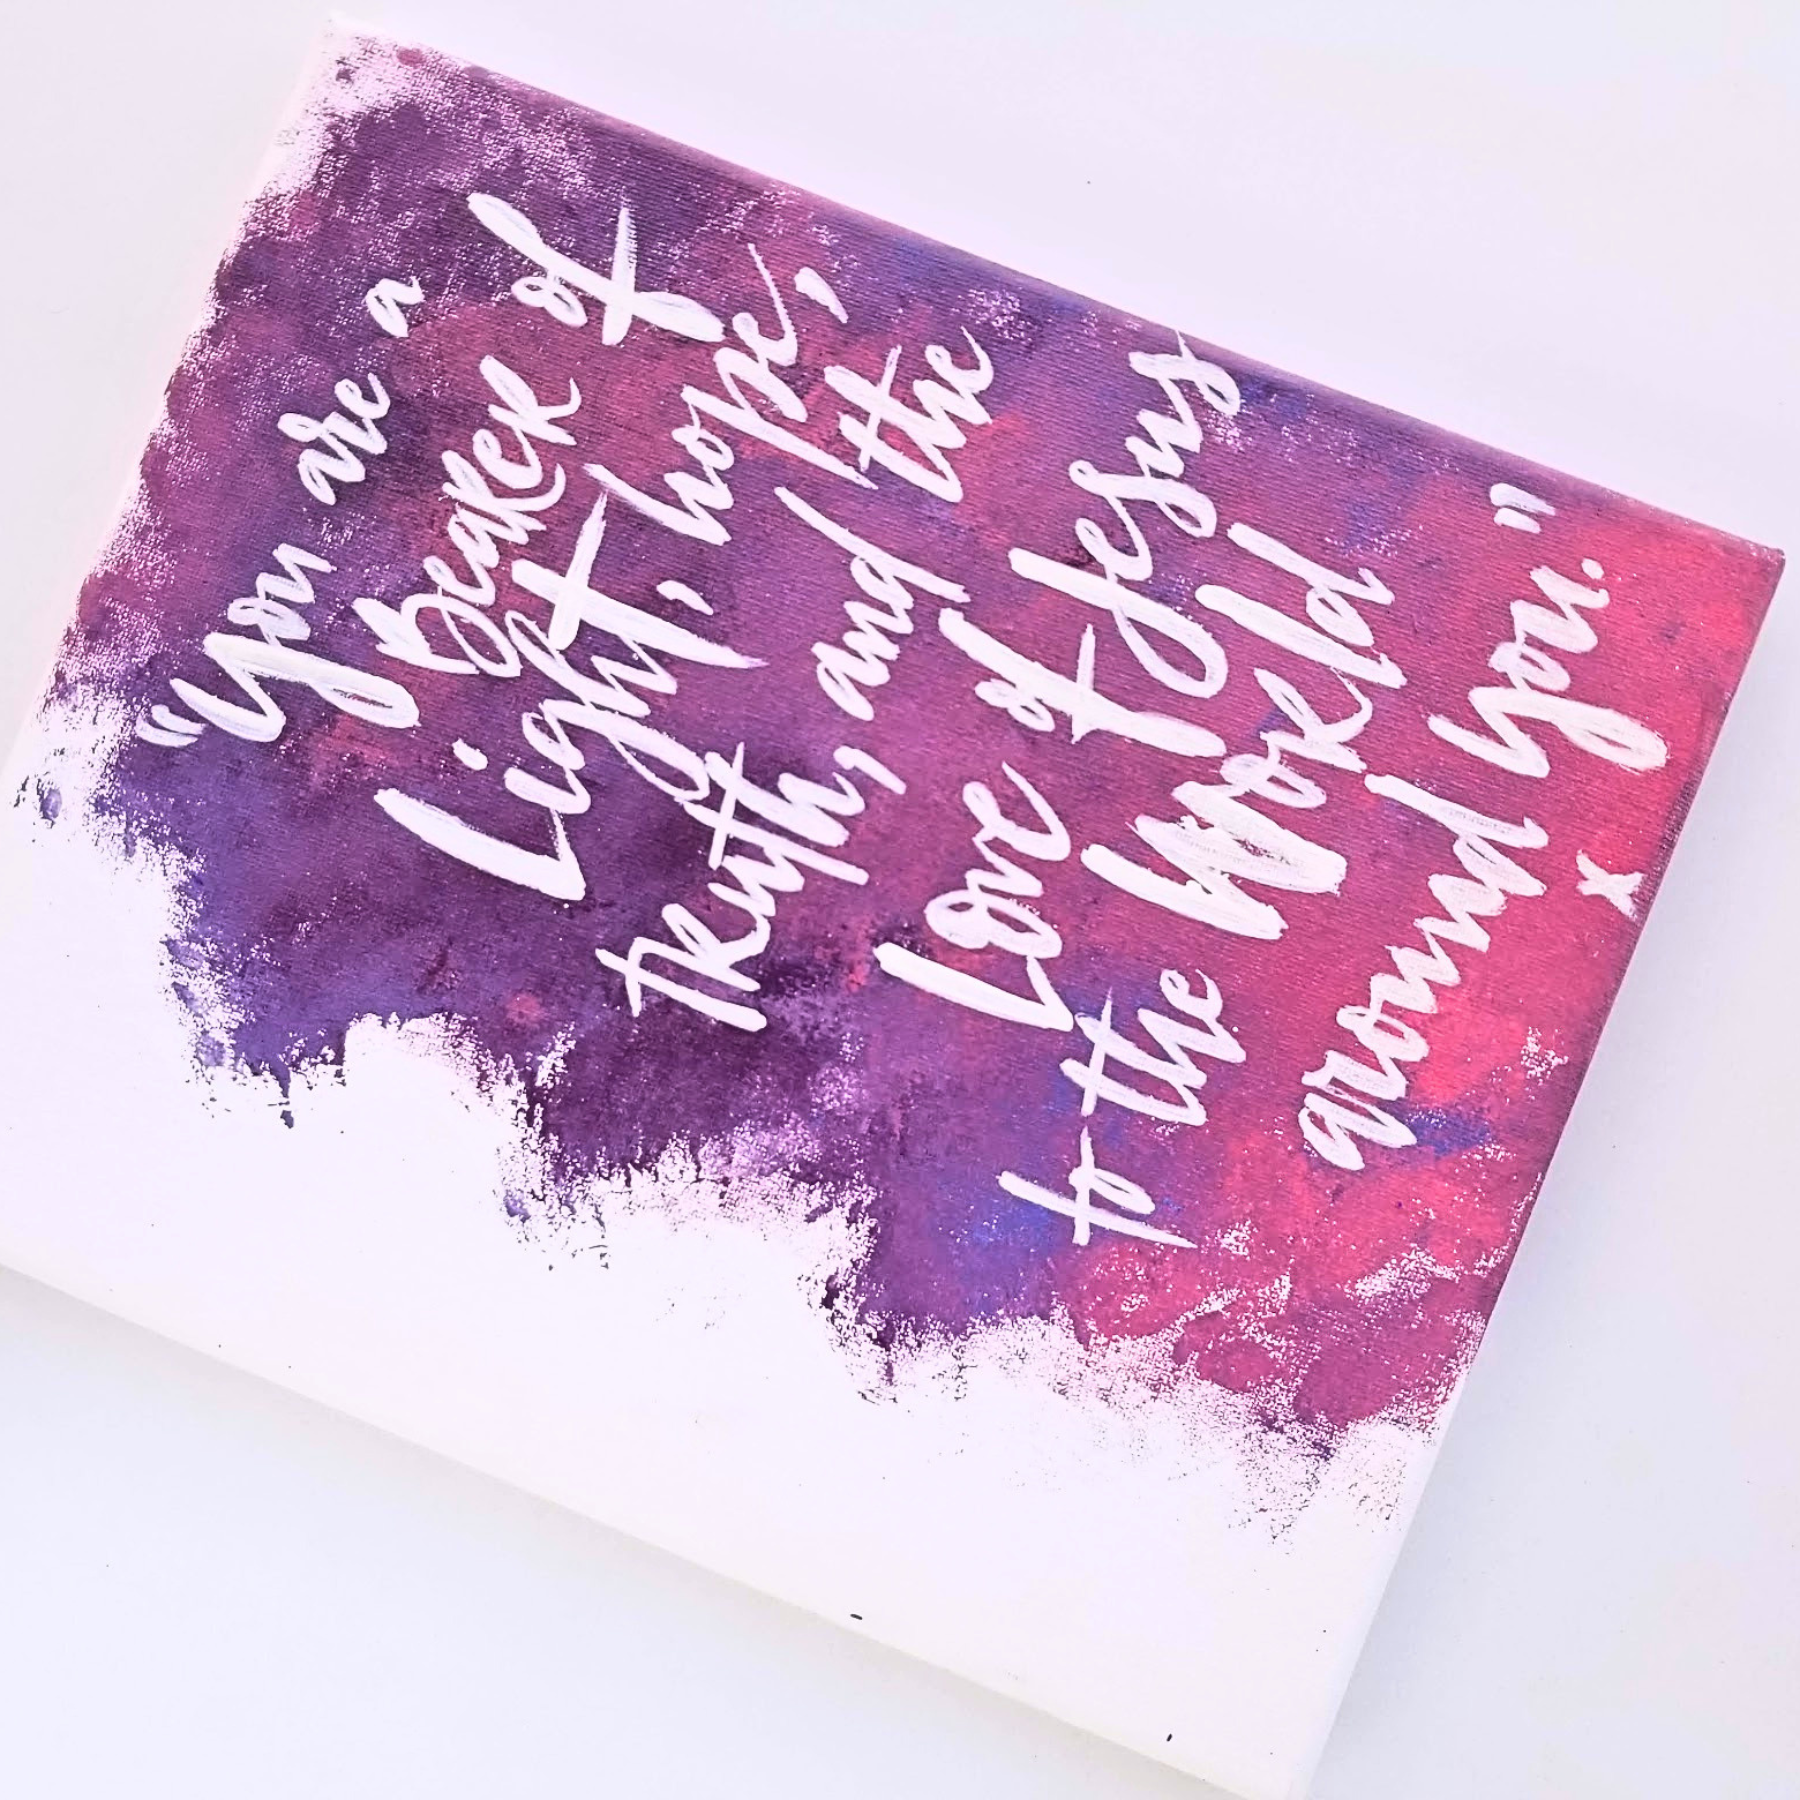 "You are a
bearer of
Light, hope,
truth, and the
Love of Jesus
to the World
around you."
x